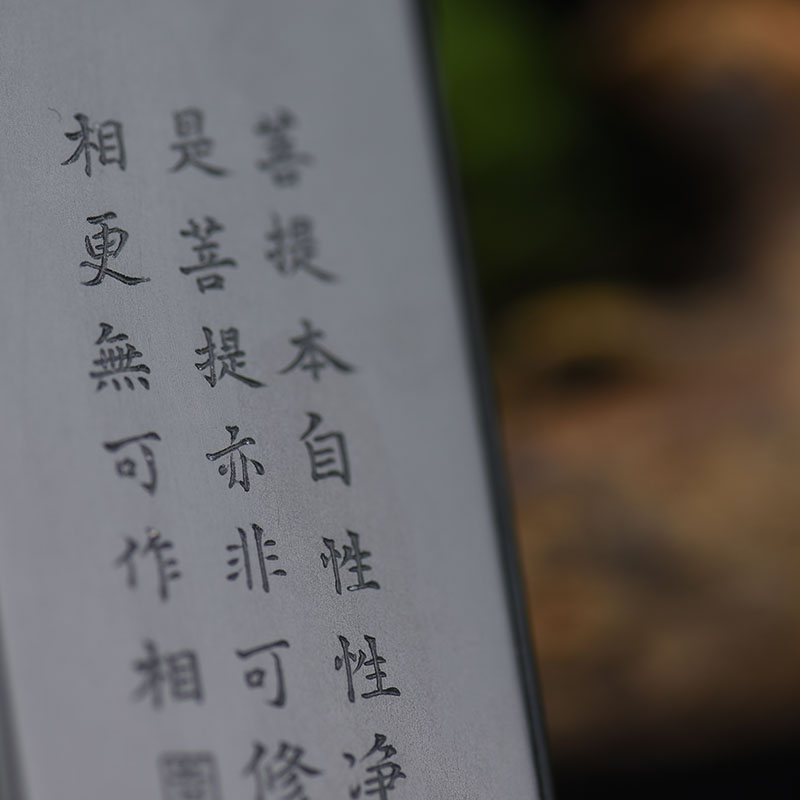 菩提本自性性净
是菩提亦非可修
相更無可作相